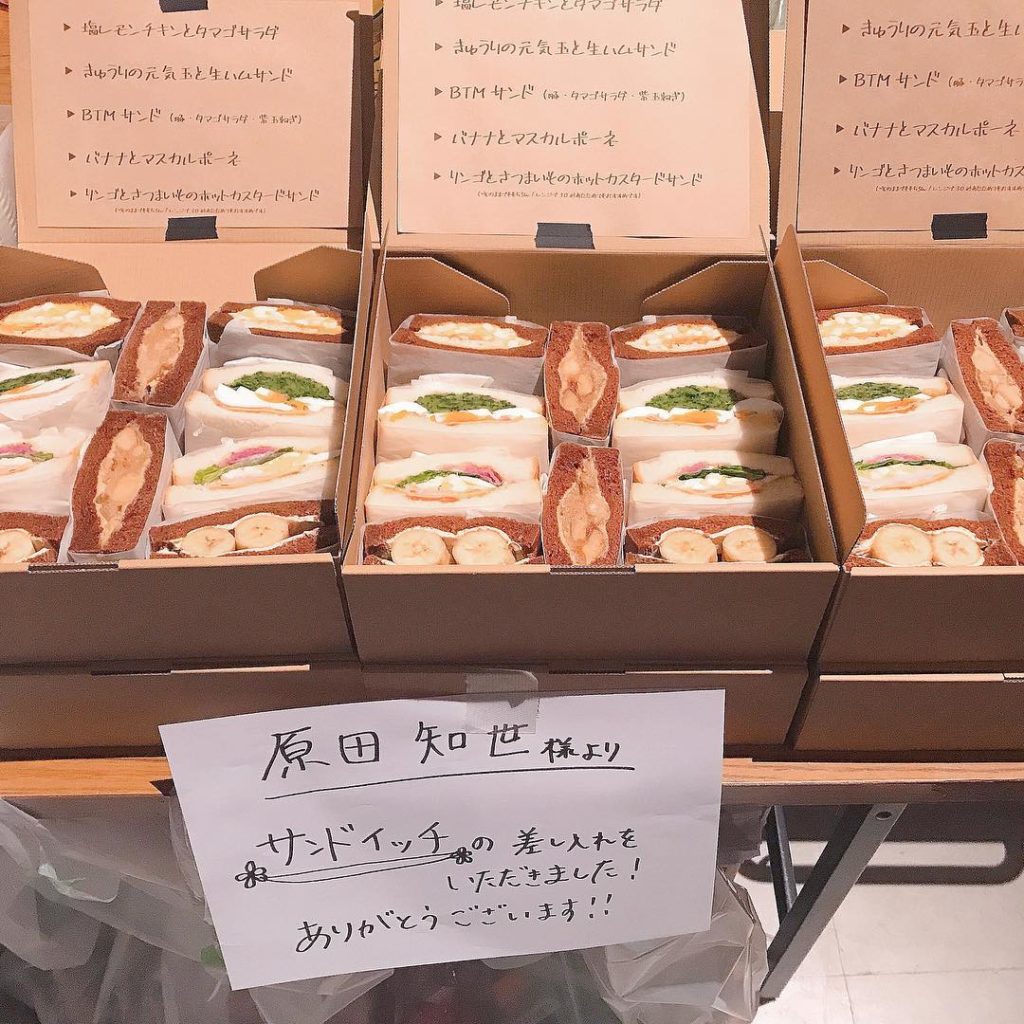 ▶ 塩レモンチキンとタマゴサラダ
▶ きゅうりの元気玉と生ハムサンド
▶ BTM サンド (豚・タマゴサラダ・紫玉ねぎ)
▶ バナナとマスカルポーネ
▶ リンゴとさつまいものホットカスタードサンド
塩レモンチキンとタマゴサラダ
▶ きゅうりの元気玉と生ハムサンド
▶ BTM サンド (豚・タマゴサラダ・紫玉ねぎ)
▶ バナナとマスカルポーネ
▶ リンゴとさつまいものホットカスタードサンド
▶ きゅうりの元気玉と生
▶ BTM サンド (豚・タマゴサラ
▶ バナナとマスカルポーネ
▶ リンゴとさつまいものホットカスタ
原田 知世 様より
サンドイッチの 差し入れを
いただきました!
ありがとうございます!!